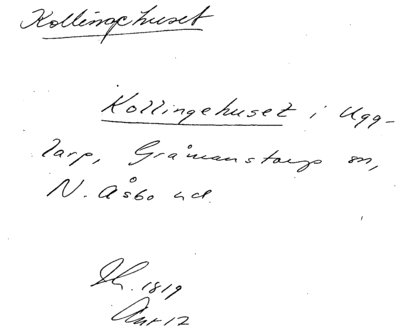 Kollingehuset
Kollingehuset i Ugg-
larp, Gråmanstorps sn,
N. Åsbo hd.
1819
12